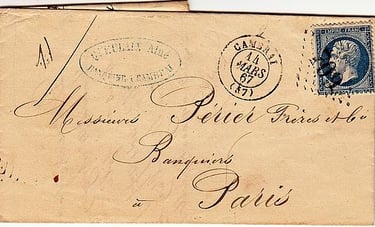 Aîné
BANQUIER à CAMBRAI
CAMBRAI
14
MARS
67
(57)
EMPIRE FRANC
Messieurs Périer Frères et Cie
Banquiers
à Paris